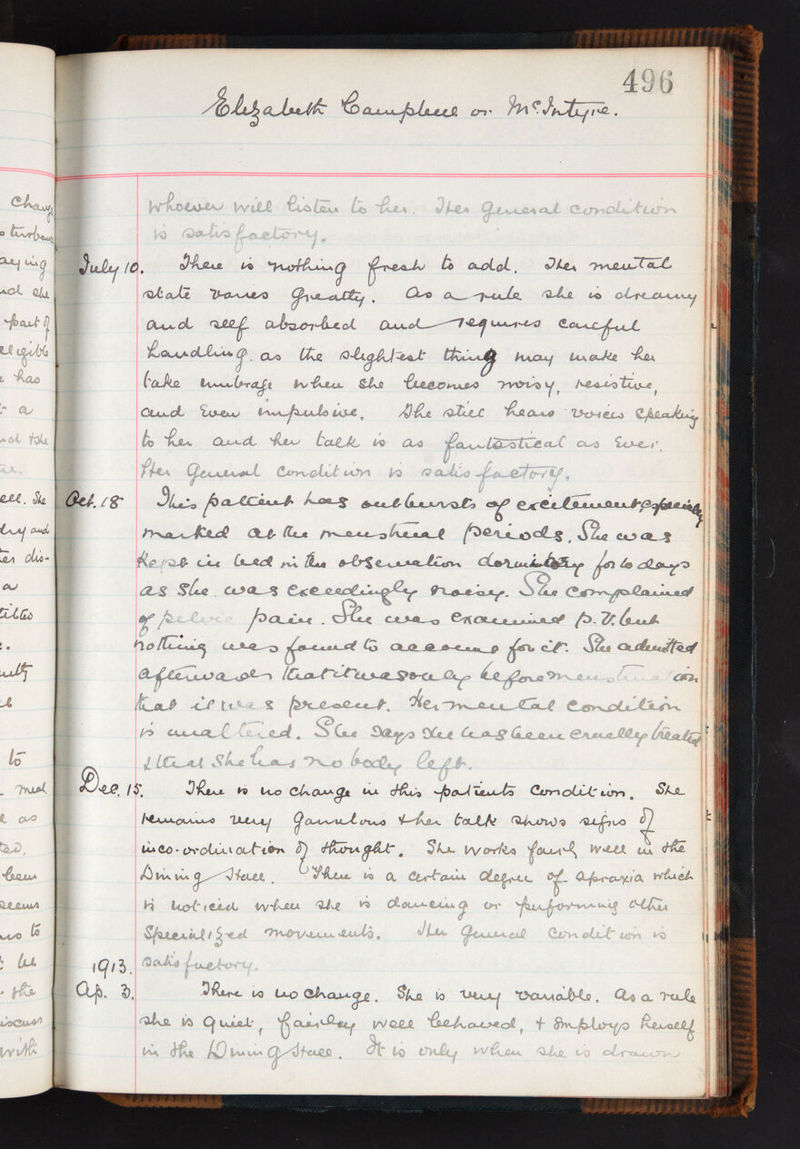 496
Elizabeth Campbell or McIntyre.
whoever will listen to her. Her general condition
is satisfactory.
July 10. There is nothing fresh to add. Her mental
state varies greatly. As a rule she is dreamy
and self absorbed and requires careful
handling as the slightest thing may make her
take umbrage when she becomes noisy, resistive,
and even impulsive. She still hears voices speaking
to her and her talk is as fantastical as ever.
Her general condition is satisfactory.
Oct. 18 This patient has outbursts of excitement especially
marked at the menstrual periods. She was
kept in bed in the observation dormitory for 10 days
as she was exceedingly noisy. She complained
of pelvic pain. She was examined p.v. but
nothing was found to account for it. She admitted
afterwards that it was only before menstruation
that it was present. Her mental condition
is unaltered. She says she has been cruelly treated
& that she has no body left.
Dec. 15. There is no change in this patients condition. She
remains very garrulous & her talk shows signs of
inco-ordination of thought. She works fairly well in the
Dining Hall. There is a certain degree of apraxia which
is noticed when she is dancing or performing other
specialized movements. Her general condition is
1913. satisfactory.
Ap. 3. There is no change. She is very variable. As a rule
she is quiet, fairley well behaved, & employs herself
in the Dining Hall. It is only when she is drawn